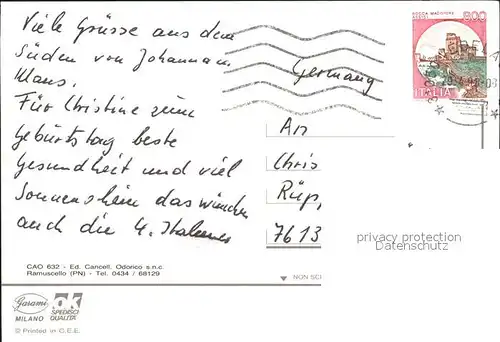 Viele Grüsse aus dem
Süden von Johannan
Klaus.
Für Christine zum
Geburtstag beste
Gesundheit und viel
Sonnenschein das wünschen
auch die 4. Italiener
Germany
ROCCA MAGGIORE
ASSISI
800
ITALIA
An
Chris
Rüp,
7613
privacy protection
Datenschutz
CAO 632 - Ed. Cancell. Odorico s.n.c.
Ramuscello (PN) - Tel. 0434 / 68129
NON SC
Garami
MILANO
OK
SPEDISCI
QUALITÀ
© Printed in C.E.E.